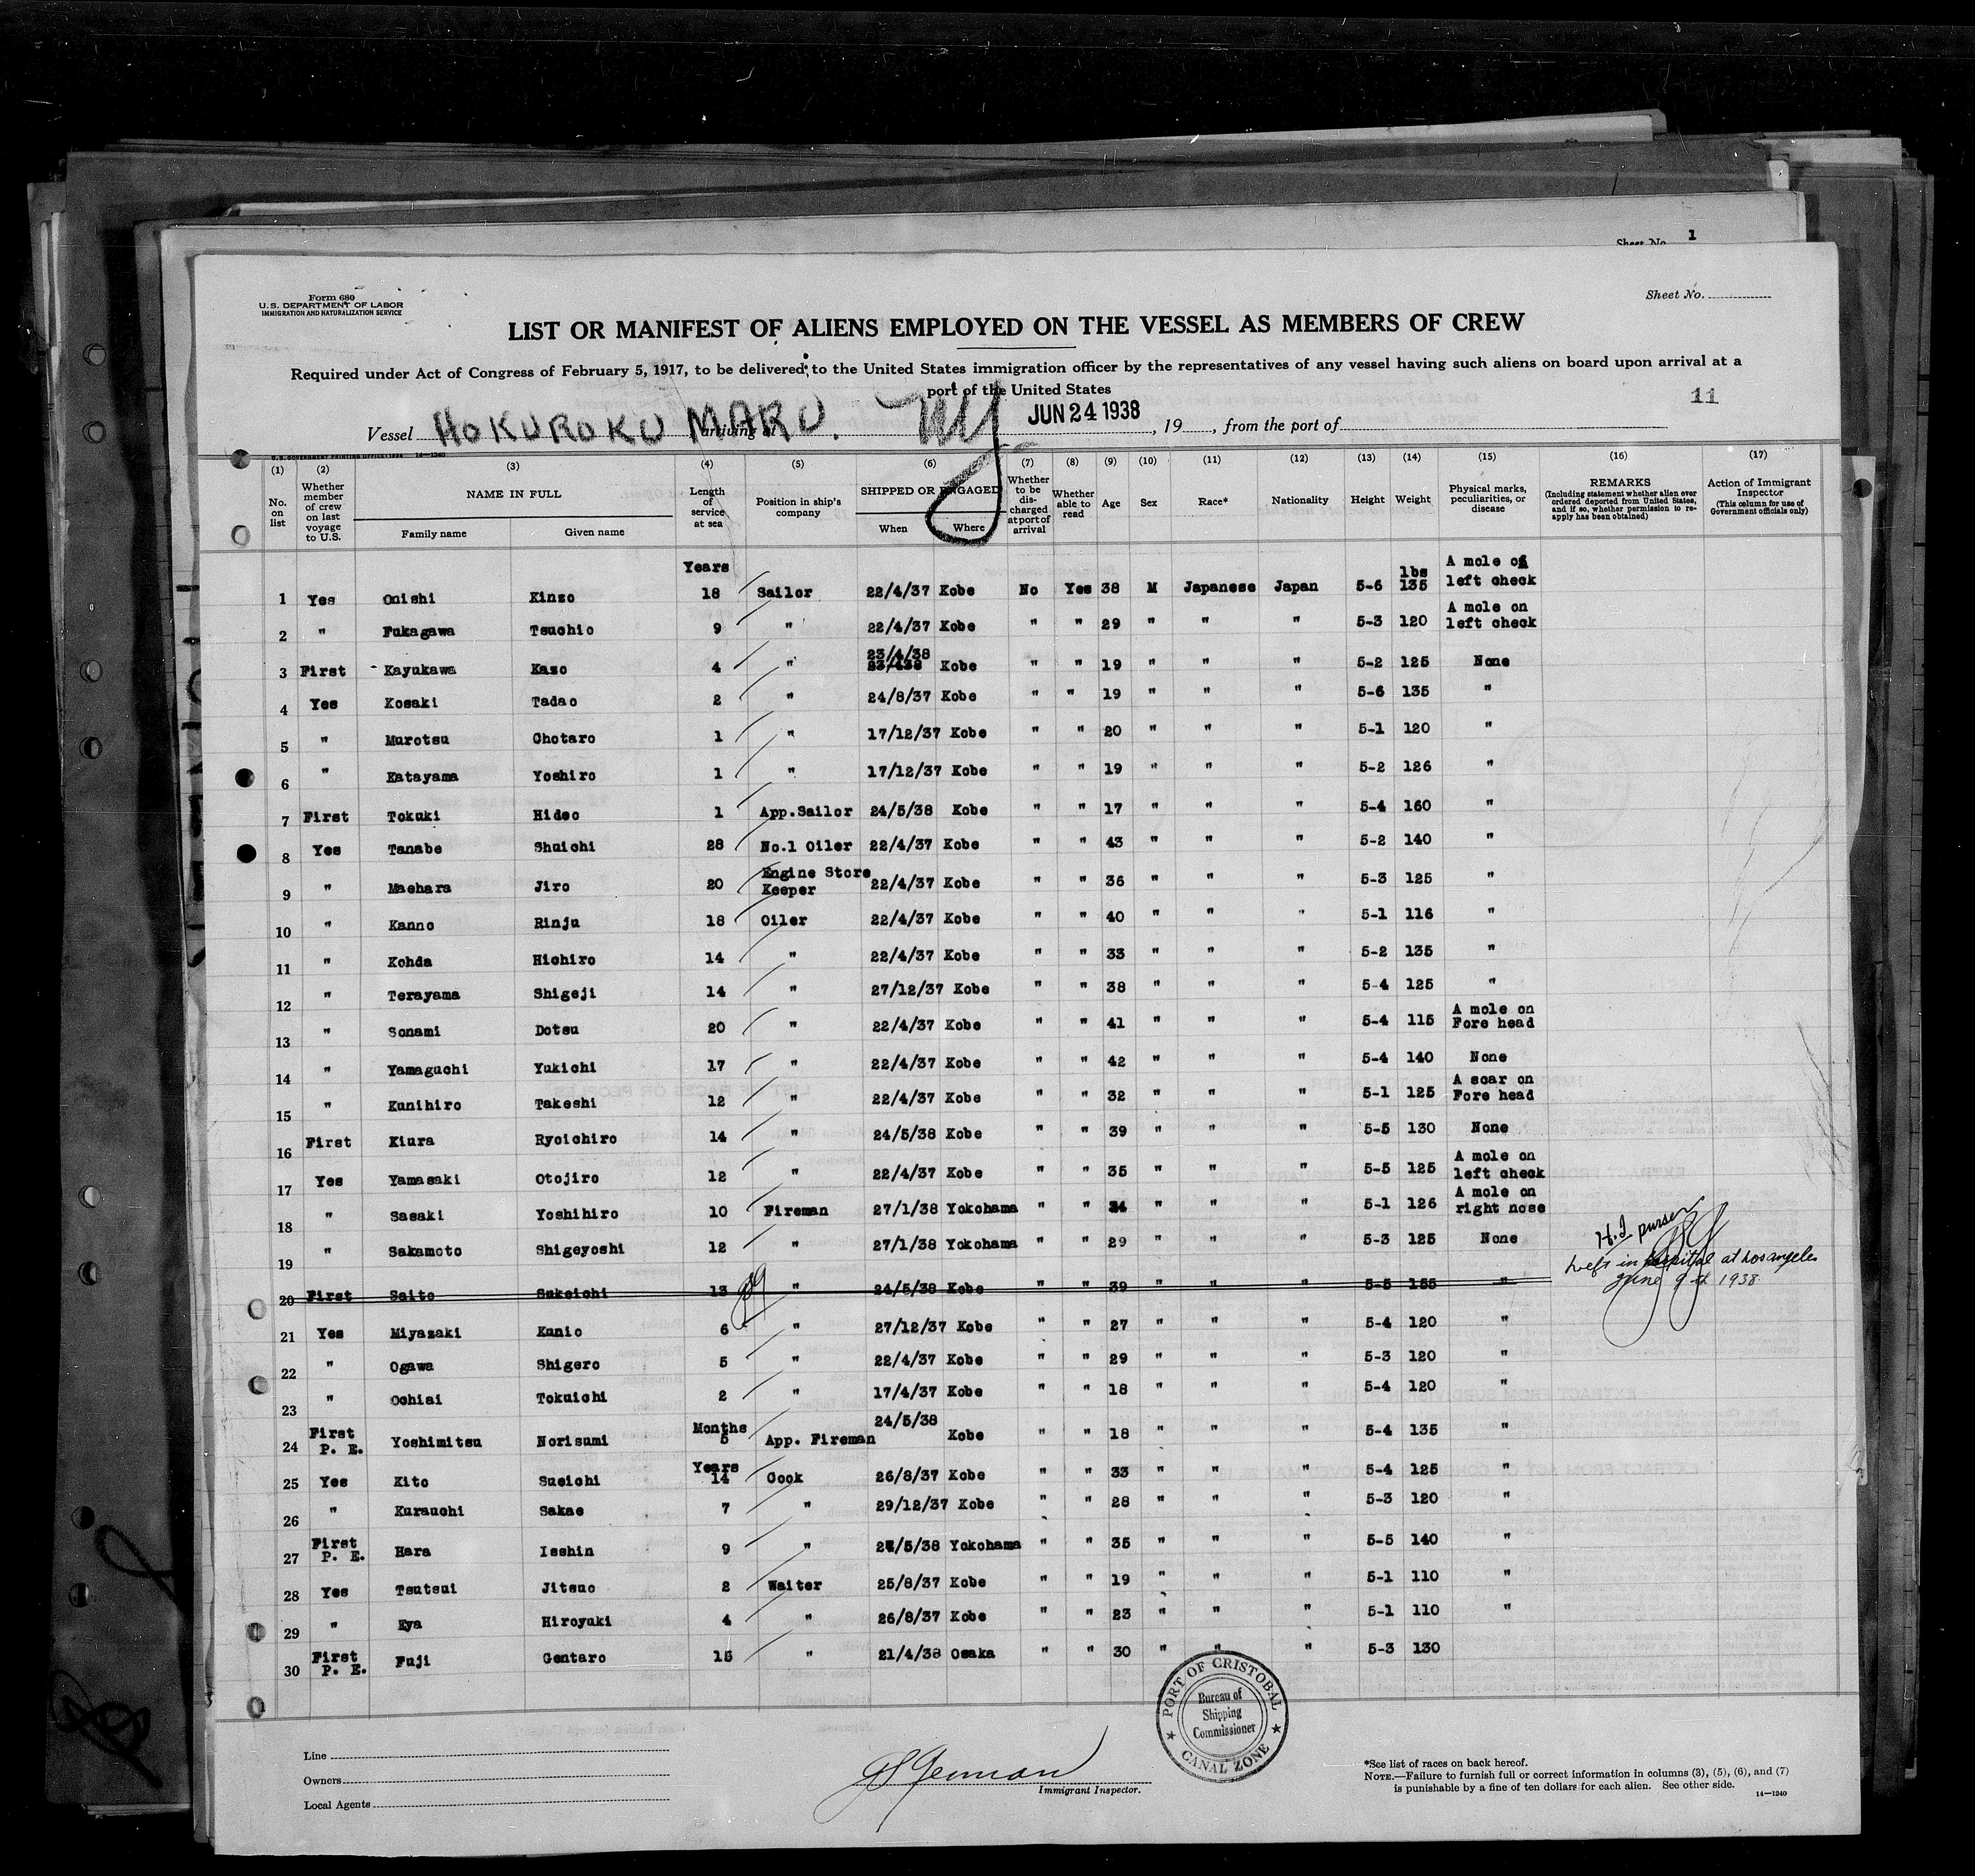 Sheet No. 1
Form 680
U. S. DEPARTMENT OF LABOR
IMMIGRATION AND NATURALIZATION SERVICE
Sheet No.
LIST OR MANIFEST OF ALIENS EMPLOYED ON THE VESSEL AS MEMBERS OF CREW
Required under Act of Congress of February 5, 1917, to be delivered to the United States immigration officer by the representatives of any vessel having such aliens on board upon arrival at a
port of the United States
11
Vessel HOKUROKU MARU. arriving at NY JUN 24 1938, 19, from the port of
U. S. GOVERNMENT PRINTING OFFICE: 1936 14—1240
(1) (2) (3) (4) (5) (6) (7) (8) (9) (10) (11) (12) (13) (14) (15) (16) (17)
No. on list Whether member of crew on last voyage to U.S. NAME IN FULL Family name Given name Length of service at sea Position in ship's company SHIPPED OR ENGAGED When Where Whether to be discharged at port of arrival Whether able to read Age Sex Race* Nationality Height Weight Physical marks, peculiarities, or disease REMARKS (Including statement whether alien ever ordered deported from United States, and if so, whether permission to reapply has been obtained) Action of Immigrant Inspector (This column for use of Government officials only)
1 Yes Onishi Kinzo Years 18 Sailor 22/4/37 Kobe No Yes 38 M Japanese Japan 5-6 lbs 135 A mole on left cheek
2 " Fukagawa Tsuchio 9 " 22/4/37 Kobe " " 29 " " " 5-3 120 A mole on left cheek
3 First Kayukawa Kazo 4 " 23/4/38 Kobe " " 19 " " " 5-2 125 None
4 Yes Kosaki Tadao 2 " 24/8/37 Kobe " " 19 " " " 5-6 135 "
5 " Murotsu Chotaro 1 " 17/12/37 Kobe " " 20 " " " 5-1 120 "
6 " Katayama Yoshiro 1 " 17/12/37 Kobe " " 19 " " " 5-2 126 "
7 First Tokuki Hideo 1 App.Sailor 24/5/38 Kobe " " 17 " " " 5-4 160 "
8 Yes Tanabe Shuichi 28 No.1 Oiler 22/4/37 Kobe " " 43 " " " 5-2 140 "
9 " Maehara Jiro 20 Engine Store Keeper 22/4/37 Kobe " " 36 " " " 5-3 125 "
10 " Kanno Rinju 18 Oiler 22/4/37 Kobe " " 40 " " " 5-1 116 "
11 " Kohda Hichiro 14 " 22/4/37 Kobe " " 33 " " " 5-2 135 "
12 " Terayama Shigeji 14 " 27/12/37 Kobe " " 38 " " " 5-4 125 "
13 " Sonami Dotsu 20 " 22/4/37 Kobe " " 41 " " " 5-4 115 A mole on Fore head
14 " Yamaguchi Yukichi 17 " 22/4/37 Kobe " " 42 " " " 5-4 140 None
15 " Kunihiro Takeshi 12 " 22/4/37 Kobe " " 32 " " " 5-1 125 A scar on Fore head
16 First Kiura Ryoichiro 14 " 24/5/38 Kobe " " 39 " " " 5-5 130 None
17 Yes Yamasaki Otojiro 12 " 22/4/37 Kobe " " 35 " " " 5-5 125 A mole on left cheek
18 " Sasaki Yoshihiro 10 Fireman 27/1/38 Yokohama " " 24 " " " 5-1 126 A mole on right nose
19 " Sakamoto Shigeyoshi 12 " 27/1/38 Yokohama " " 29 " " " 5-3 125 None
H.I purser
Left in hospital at Los angeles
June 9th 1938
20 First Saito Sukeichi 13 " 24/5/38 Kobe " " 39 " " " 5-5 155 "
21 Yes Miyazaki Kunio 6 " 27/12/37 Kobe " " 27 " " " 5-4 120 "
22 " Ogawa Shigero 5 " 22/4/37 Kobe " " 29 " " " 5-3 120 "
23 " Ochiai Tokuichi 2 " 17/4/37 Kobe " " 18 " " " 5-4 120 "
24 First P. E. Yoshimitsu Norisumi Months 5 App. Fireman 24/5/38 Kobe " " 18 " " " 5-4 135 "
25 Yes Kito Sueichi Years 14 Cook 26/8/37 Kobe " " 33 " " " 5-4 125 "
26 " Kurauchi Sakae 7 " 29/12/37 Kobe " " 28 " " " 5-3 120 "
27 First P. E. Hara Isshin 9 " /5/38 Yokohama " " 35 " " " 5-5 140 "
28 Yes Tsutsui Jitsuo 2 Waiter 25/8/37 Kobe " " 19 " " " 5-1 110 "
29 " Eya Hiroyuki 4 " 26/8/37 Kobe " " 23 " " " 5-1 110 "
30 First P. E. Fuji Gentaro 15 " 21/4/38 Osaka " " 30 " " " 5-3 130
PORT OF CRISTOBAL
Bureau of
Shipping
Commissioner
CANAL ZONE
Line
Owners
Local Agents
Immigrant Inspector.
*See list of races on back hereof.
NOTE.—Failure to furnish full or correct information in columns (3), (5), (6), and (7)
is punishable by a fine of ten dollars for each alien. See other side.
14—1240